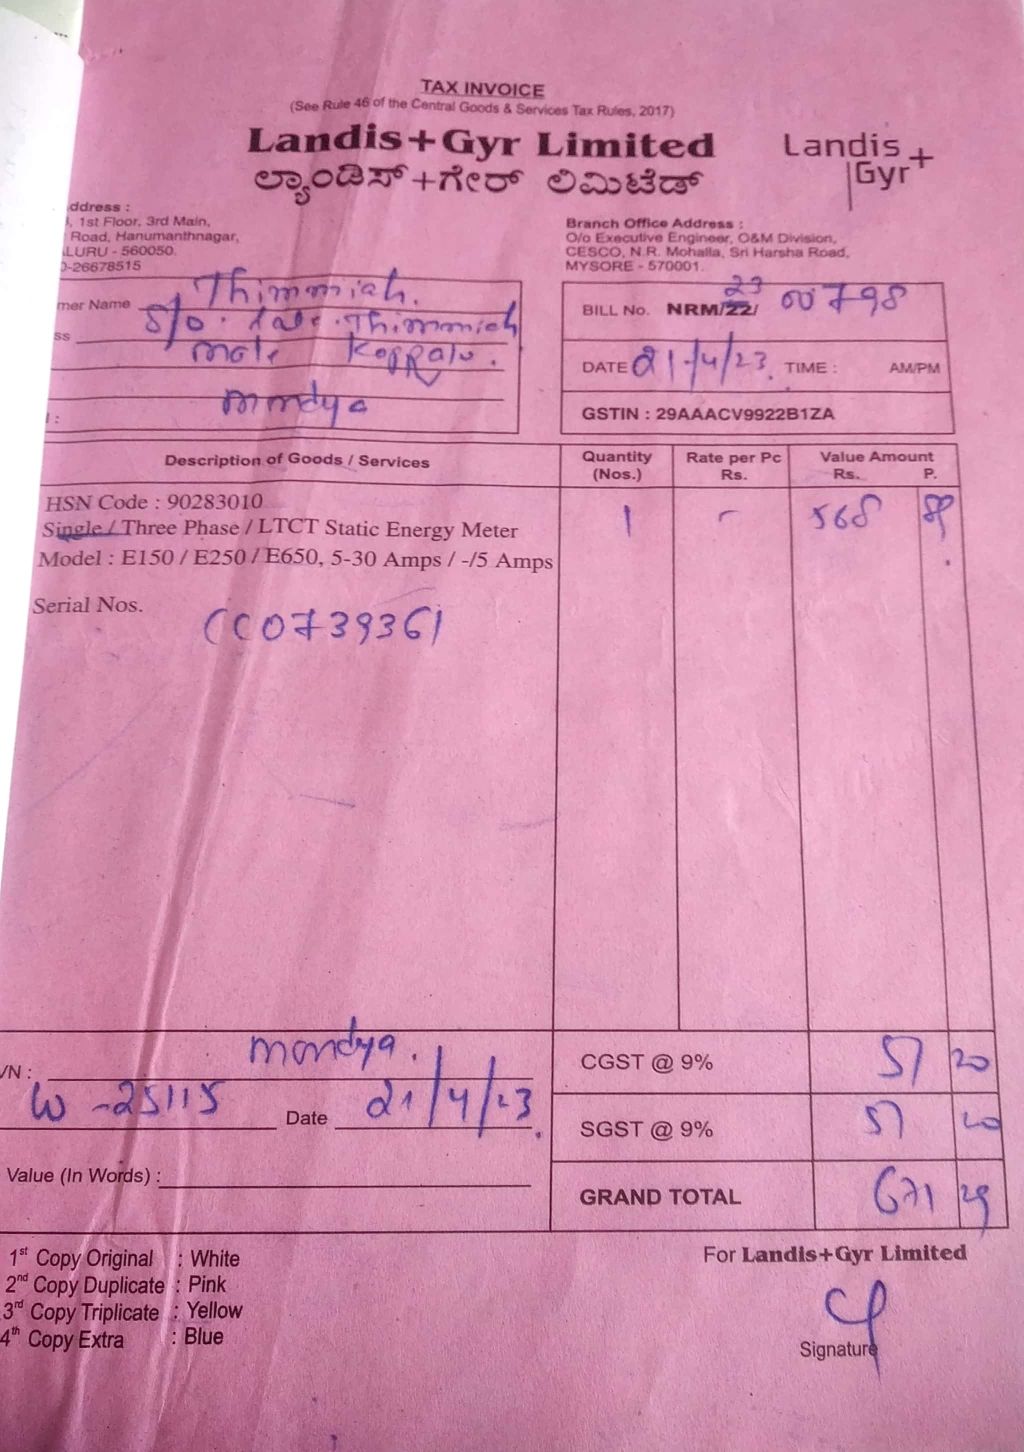 TAX INVOICE
(See Rule 46 of the Central Goods & Services Tax Rules, 2017)
Landis+Gyr Limited
ಲ್ಯಾಂಡಿಸ್+ಗೇರ್ ಲಿಮಿಟೆಡ್
Landis
Gyr+
ddress :
, 1st Floor, 3rd Main,
Road, Hanumanthnagar,
LURU - 560050.
-26678515
Branch Office Address :
O/o Executive Engineer, O&M Division,
CESCO, N.R. Mohalla, Sri Harsha Road,
MYSORE - 570001.
mer Name Thimmiah.
S/o. Late. Thimmiah
ss
Koppalu.
Mandya
BILL No. NRM/22/ 23 00798
DATE 21/4/23. TIME : AM/PM
GSTIN : 29AAACV9922B1ZA
Description of Goods / Services Quantity (Nos.) Rate per Pc Rs. Value Amount Rs. P.
HSN Code : 90283010
Single / Three Phase / LTCT Static Energy Meter 1 - 568 89
Model : E150 / E250 / E650, 5-30 Amps / -/5 Amps
Serial Nos.
CC0739361
VN : Mandya.
W-25115 Date 21/4/23.
Value (In Words) :
CGST @ 9% 51 20
SGST @ 9% 51 20
GRAND TOTAL 671 29
1st Copy Original : White
2nd Copy Duplicate : Pink
3rd Copy Triplicate : Yellow
4th Copy Extra : Blue
For Landis+Gyr Limited
Signature